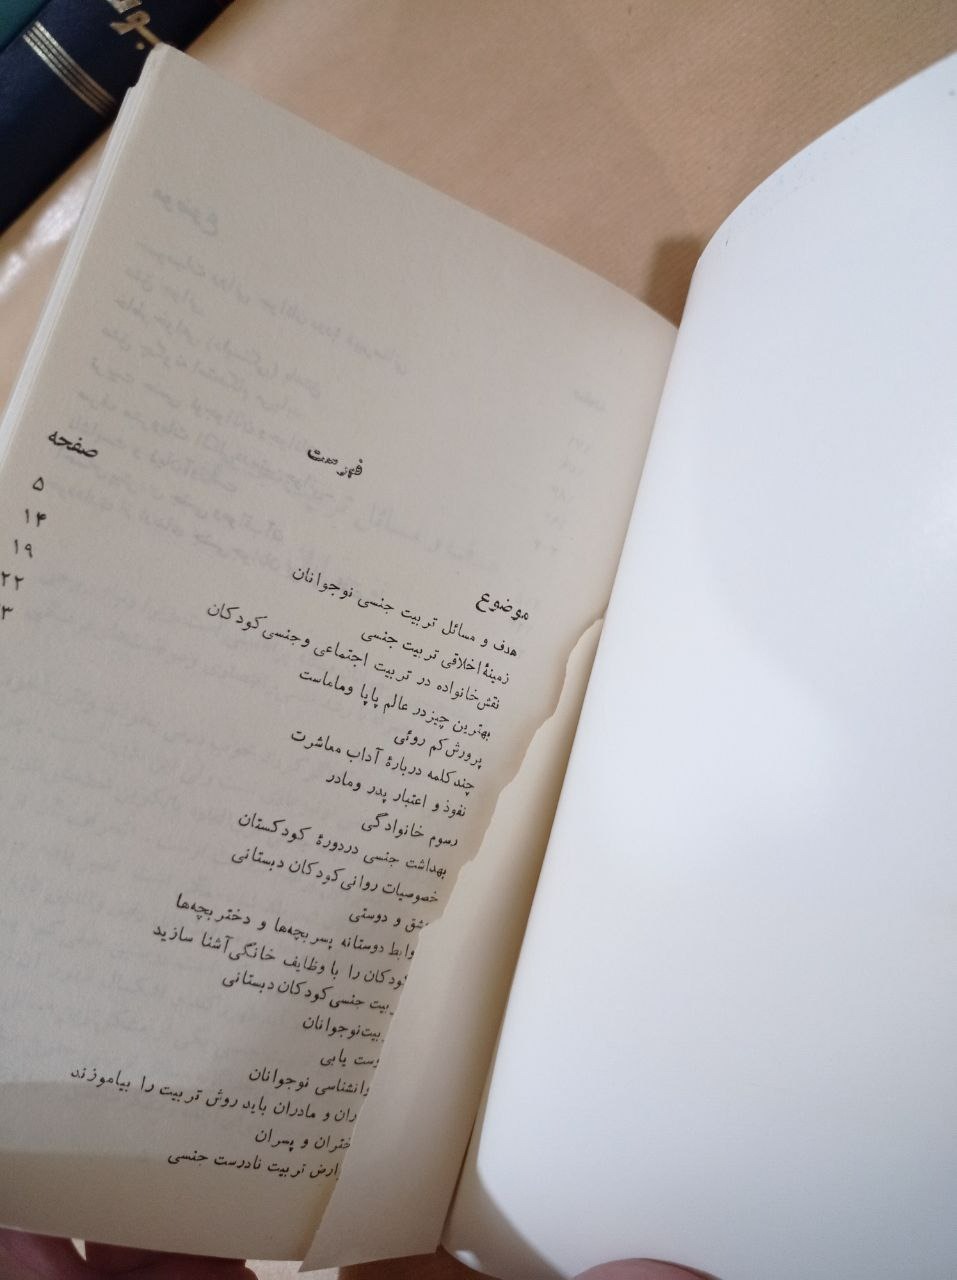 فهرست
صفحه
موضوع
۵
هدف و مسائل تربیت جنسی نوجوانان
۱۴
زمینهٔ اخلاقی تربیت جنسی
۱۹
نقش خانواده در تربیت اجتماعی وجنسی کودکان
۲۲
بهترین چیز در عالم پاپا وماماست
۳
پرورش کم روئی
چند کلمه دربارهٔ آداب معاشرت
نفوذ و اعتبار پدر ومادر
رسوم خانوادگی
بهداشت جنسی در دورهٔ کودکستان
خصوصیات روانی کودکان دبستانی
شق و دوستی
وابط دوستانه پسر بچه‌ها و دختر بچه‌ها
ودکان را با وظایف خانگی آشنا سازید
بیت جنسی کودکان دبستانی
بیت نوجوانان
وست یابی
وانشناسی نوجوانان
ران و مادران باید روش تربیت را بیاموزند
ختران و پسران
وارض تربیت نادرست جنسی